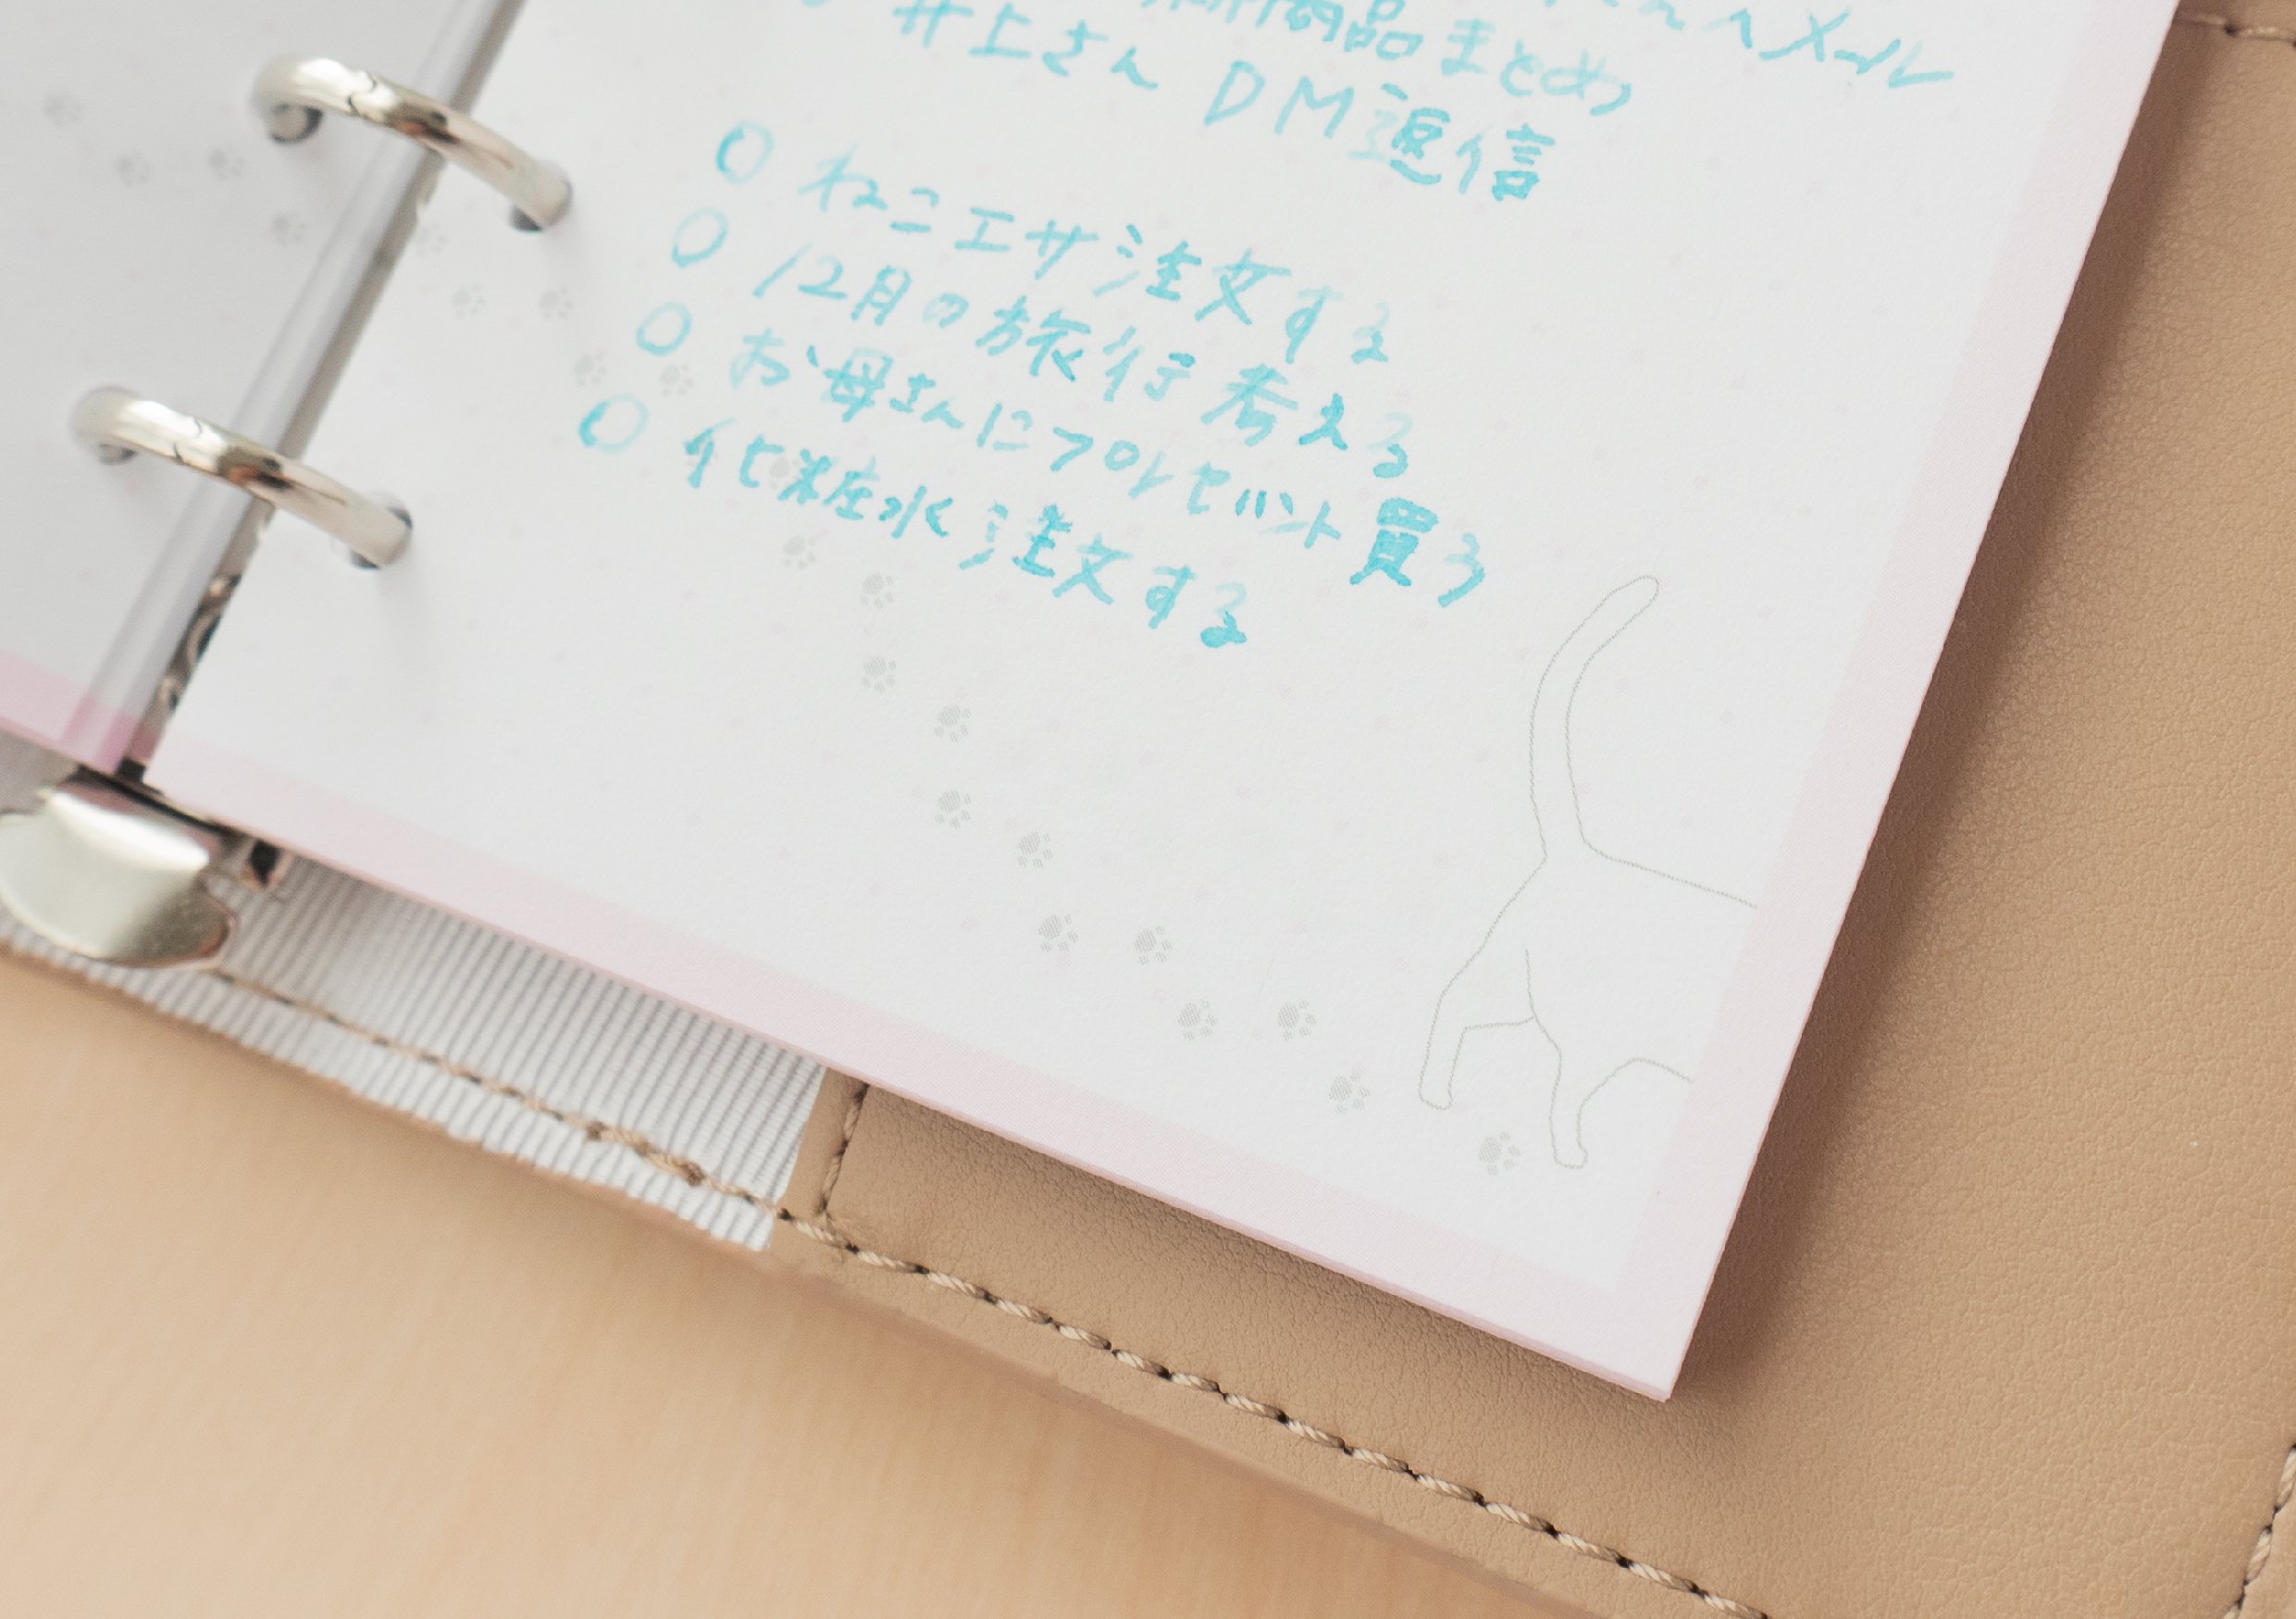 さんへメール
商品まとめ
井上さん DM返信
○ ねこエサ注文する
○ 12月の旅行考える
○ お母さんにプレゼント買う
○ 化粧水注文する